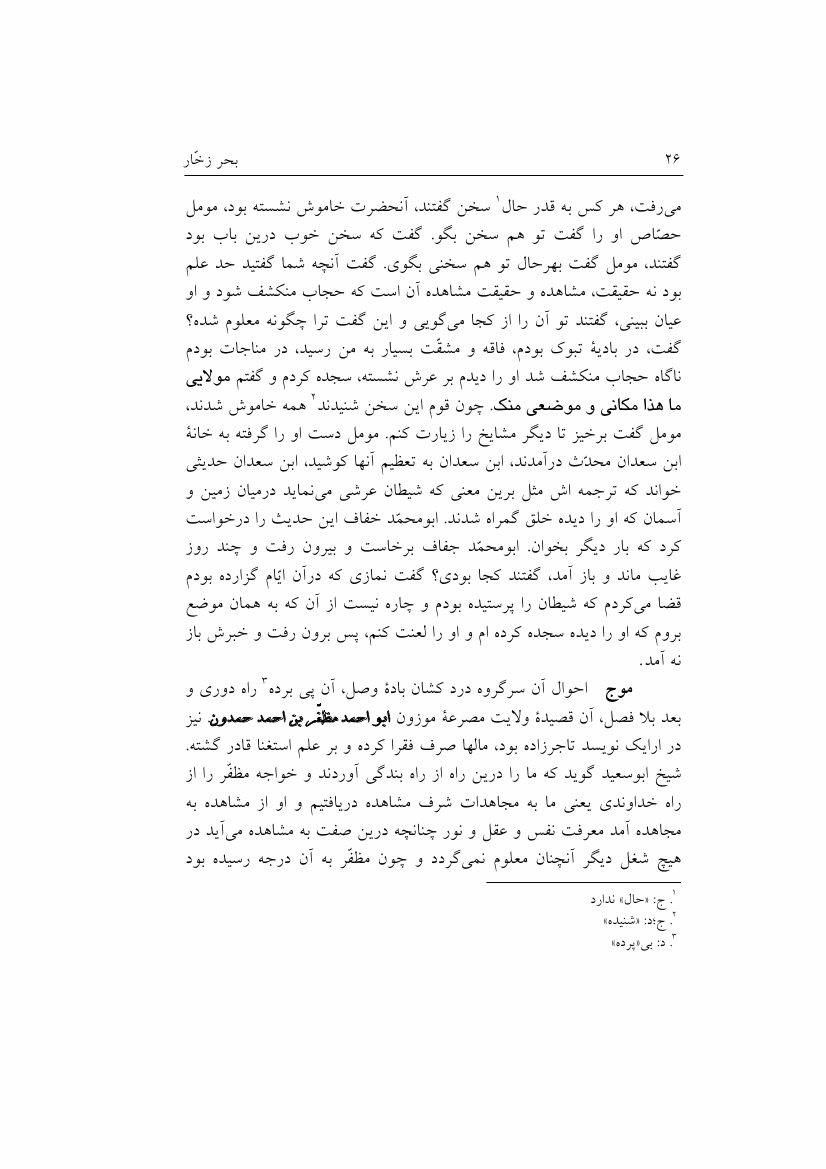 ۲۶ بحر زخّار
می‌رفت، هر کس به قدر حال۱ سخن گفتند، آنحضرت خاموش نشسته بود، مومل
حصّاص او را گفت تو هم سخن بگو. گفت که سخن خوب درین باب بود
گفتند، مومل گفت بهرحال تو هم سخنی بگوی. گفت آنچه شما گفتید حد علم
بود نه حقیقت، مشاهده و حقیقت مشاهده آن است که حجاب منکشف شود و او
عیان ببینی، گفتند تو آن را از کجا می‌گویی و این گفت ترا چگونه معلوم شده؟
گفت، در بادیهٔ تبوک بودم، فاقه و مشقّت بسیار به من رسید، در مناجات بودم
ناگاه حجاب منکشف شد او را دیدم بر عرش نشسته، سجده کردم و گفتم مولایی
ما هذا مکانی و موضعی منک. چون قوم این سخن شنیدند۲ همه خاموش شدند،
مومل گفت برخیز تا دیگر مشایخ را زیارت کنم. مومل دست او را گرفته به خانهٔ
ابن سعدان محدّث درآمدند، ابن سعدان به تعظیم آنها کوشید، ابن سعدان حدیثی
خواند که ترجمه اش مثل برین معنی که شیطان عرشی می‌نماید درمیان زمین و
آسمان که او را دیده خلق گمراه شدند. ابومحمّد خفاف این حدیث را درخواست
کرد که بار دیگر بخوان. ابومحمّد جفاف برخاست و بیرون رفت و چند روز
غایب ماند و باز آمد، گفتند کجا بودی؟ گفت نمازی که درآن ایّام گزارده بودم
قضا می‌کردم که شیطان را پرستیده بودم و چاره نیست از آن که به همان موضع
بروم که او را دیده سجده کرده ام و او را لعنت کنم، پس برون رفت و خبرش باز
نه آمد.
موج احوال آن سرگروه درد کشان بادهٔ وصل، آن پی برده۳ راه دوری و
بعد بلا فصل، آن قصیدهٔ ولایت مصرعهٔ موزون ابو احمد مظفّر بن احمد حمدون نیز
در ارایک نویسد تاجرزاده بود، مالها صرف فقرا کرده و بر علم استغنا قادر گشته.
شیخ ابوسعید گوید که ما را درین راه از راه بندگی آوردند و خواجه مظفّر را از
راه خداوندی یعنی ما به مجاهدات شرف مشاهده دریافتیم و او از مشاهده به
مجاهده آمد معرفت نفس و عقل و نور چنانچه درین صفت به مشاهده می‌آید در
هیچ شغل دیگر آنچنان معلوم نمی‌گردد و چون مظفّر به آن درجه رسیده بود
۱. ج: «حال» ندارد
۲. ج؛د: «شنیده»
۳. د: بی«پرده»